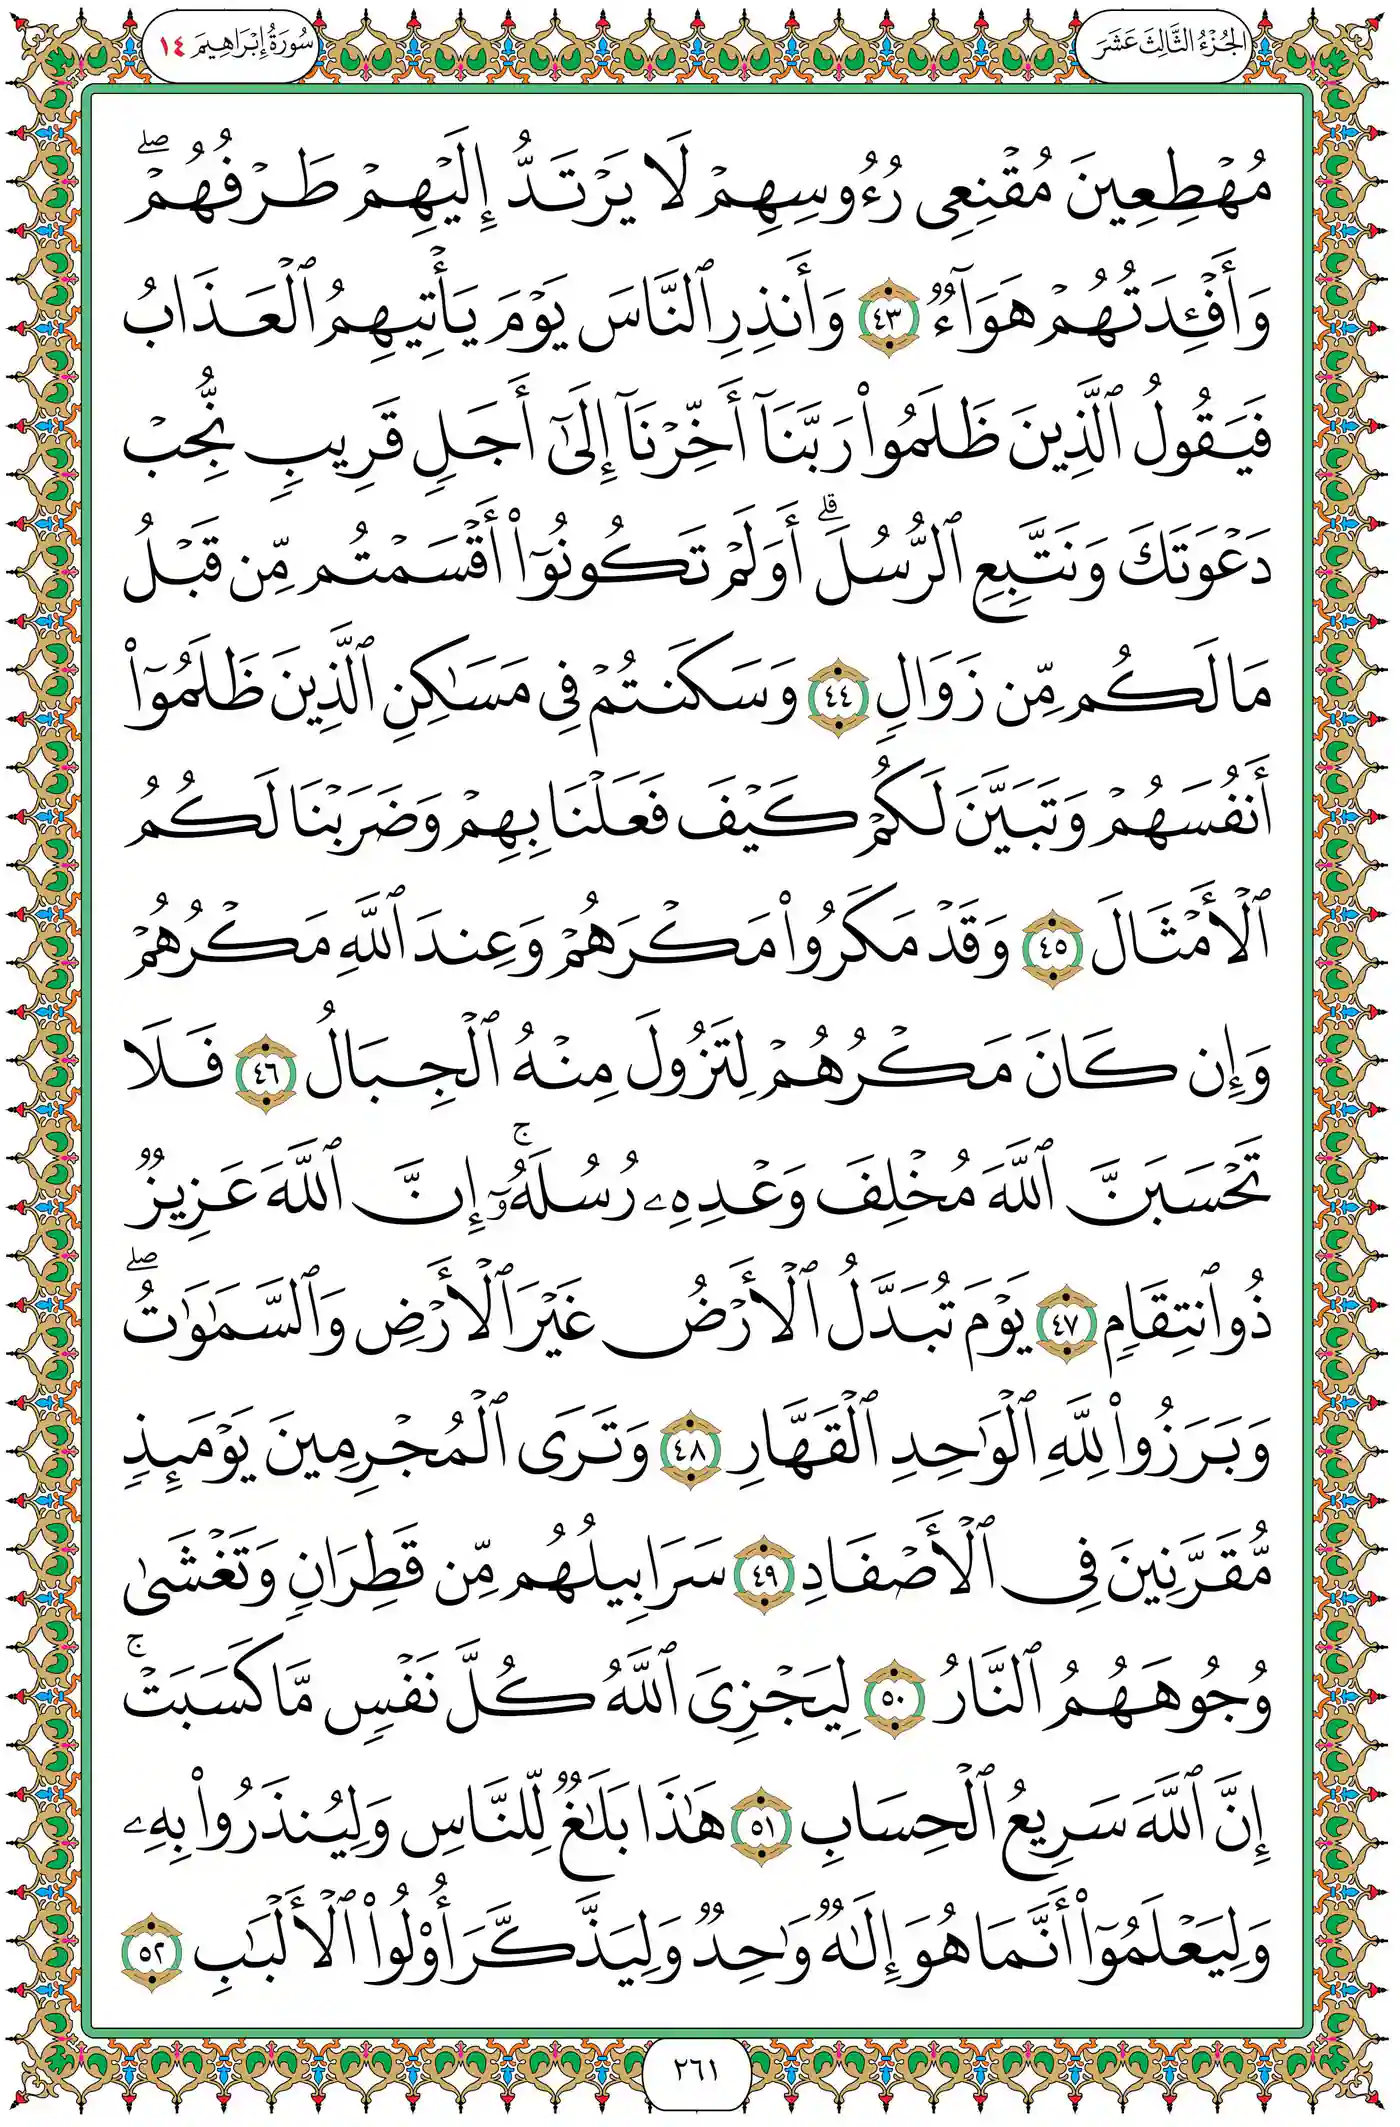 الجُزْءُ الثَّالِثَ عَشَرَ
سُورَةُ إِبْرَاهِيمَ ١٤
مُهۡطِعِينَ مُقۡنِعِي رُءُوسِهِمۡ لَا يَرۡتَدُّ إِلَيۡهِمۡ طَرۡفُهُمۡۖ
وَأَفۡـِٔدَتُهُمۡ هَوَآءٞ ٤٣ وَأَنذِرِ ٱلنَّاسَ يَوۡمَ يَأۡتِيهِمُ ٱلۡعَذَابُ
فَيَقُولُ ٱلَّذِينَ ظَلَمُواْ رَبَّنَآ أَخِّرۡنَآ إِلَىٰٓ أَجَلٖ قَرِيبٖ نُّجِبۡ
دَعۡوَتَكَ وَنَتَّبِعِ ٱلرُّسُلَۗ أَوَلَمۡ تَكُونُوٓاْ أَقۡسَمۡتُم مِّن قَبۡلُ
مَا لَكُم مِّن زَوَالٖ ٤٤ وَسَكَنتُمۡ فِي مَسَٰكِنِ ٱلَّذِينَ ظَلَمُوٓاْ
أَنفُسَهُمۡ وَتَبَيَّنَ لَكُمۡ كَيۡفَ فَعَلۡنَا بِهِمۡ وَضَرَبۡنَا لَكُمُ
ٱلۡأَمۡثَالَ ٤٥ وَقَدۡ مَكَرُواْ مَكۡرَهُمۡ وَعِندَ ٱللَّهِ مَكۡرُهُمۡ
وَإِن كَانَ مَكۡرُهُمۡ لِتَزُولَ مِنۡهُ ٱلۡجِبَالُ ٤٦ فَلَا
تَحۡسَبَنَّ ٱللَّهَ مُخۡلِفَ وَعۡدِهِۦ رُسُلَهُۥٓۚ إِنَّ ٱللَّهَ عَزِيزٞ
ذُو ٱنتِقَامٖ ٤٧ يَوۡمَ تُبَدَّلُ ٱلۡأَرۡضُ غَيۡرَ ٱلۡأَرۡضِ وَٱلسَّمَٰوَٰتُۖ
وَبَرَزُواْ لِلَّهِ ٱلۡوَٰحِدِ ٱلۡقَهَّارِ ٤٨ وَتَرَى ٱلۡمُجۡرِمِينَ يَوۡمَئِذٖ
مُّقَرَّنِينَ فِي ٱلۡأَصۡفَادِ ٤٩ سَرَابِيلُهُم مِّن قَطِرَانٖ وَتَغۡشَىٰ
وُجُوهَهُمُ ٱلنَّارُ ٥٠ لِيَجۡزِيَ ٱللَّهُ كُلَّ نَفۡسٖ مَّا كَسَبَتۡۚ
إِنَّ ٱللَّهَ سَرِيعُ ٱلۡحِسَابِ ٥١ هَٰذَا بَلَٰغٞ لِّلنَّاسِ وَلِيُنذَرُواْ بِهِۦ
وَلِيَعۡلَمُوٓاْ أَنَّمَا هُوَ إِلَٰهٞ وَٰحِدٞ وَلِيَذَّكَّرَ أُوْلُواْ ٱلۡأَلۡبَٰبِ ٥٢
٢٦١